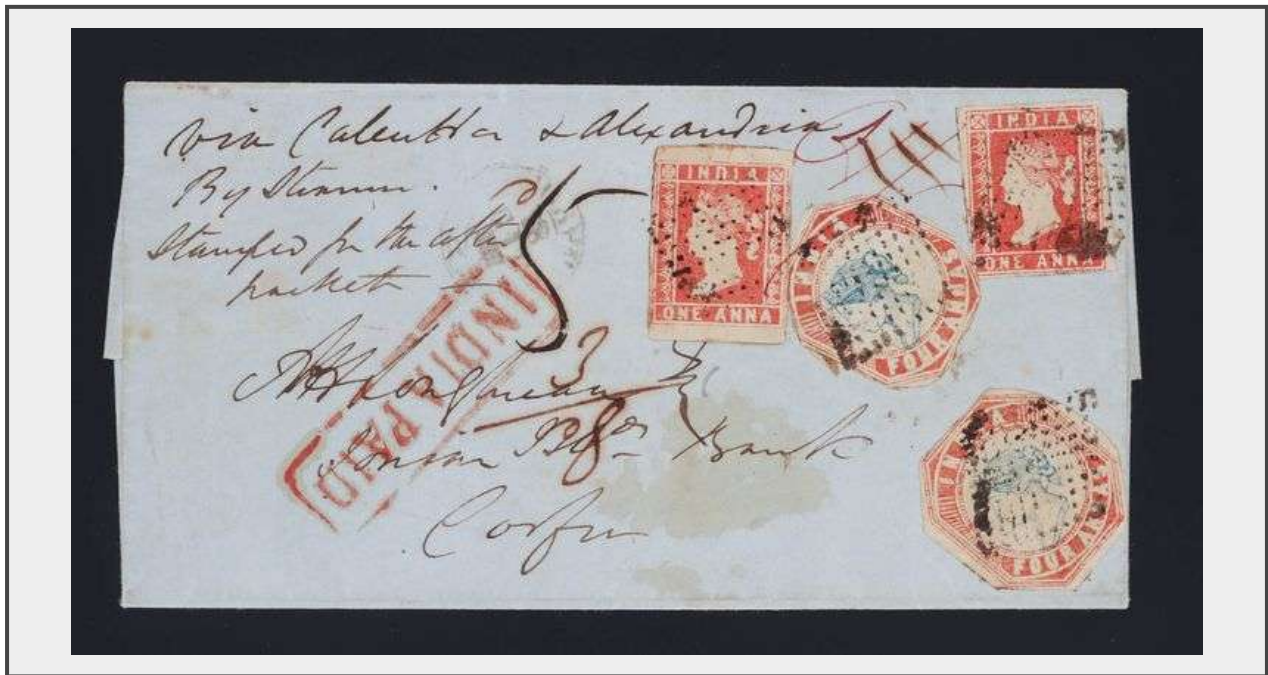 via Calcutta & Alexandria
By Steamer.
Stamped for the after
packet
5
INDIA PAID
3
8
Ionian Bank
Corfu
INDIA
ONE ANNA
INDIA
FOUR ANNAS
INDIA
ONE ANNA
INDIA
FOUR ANNAS